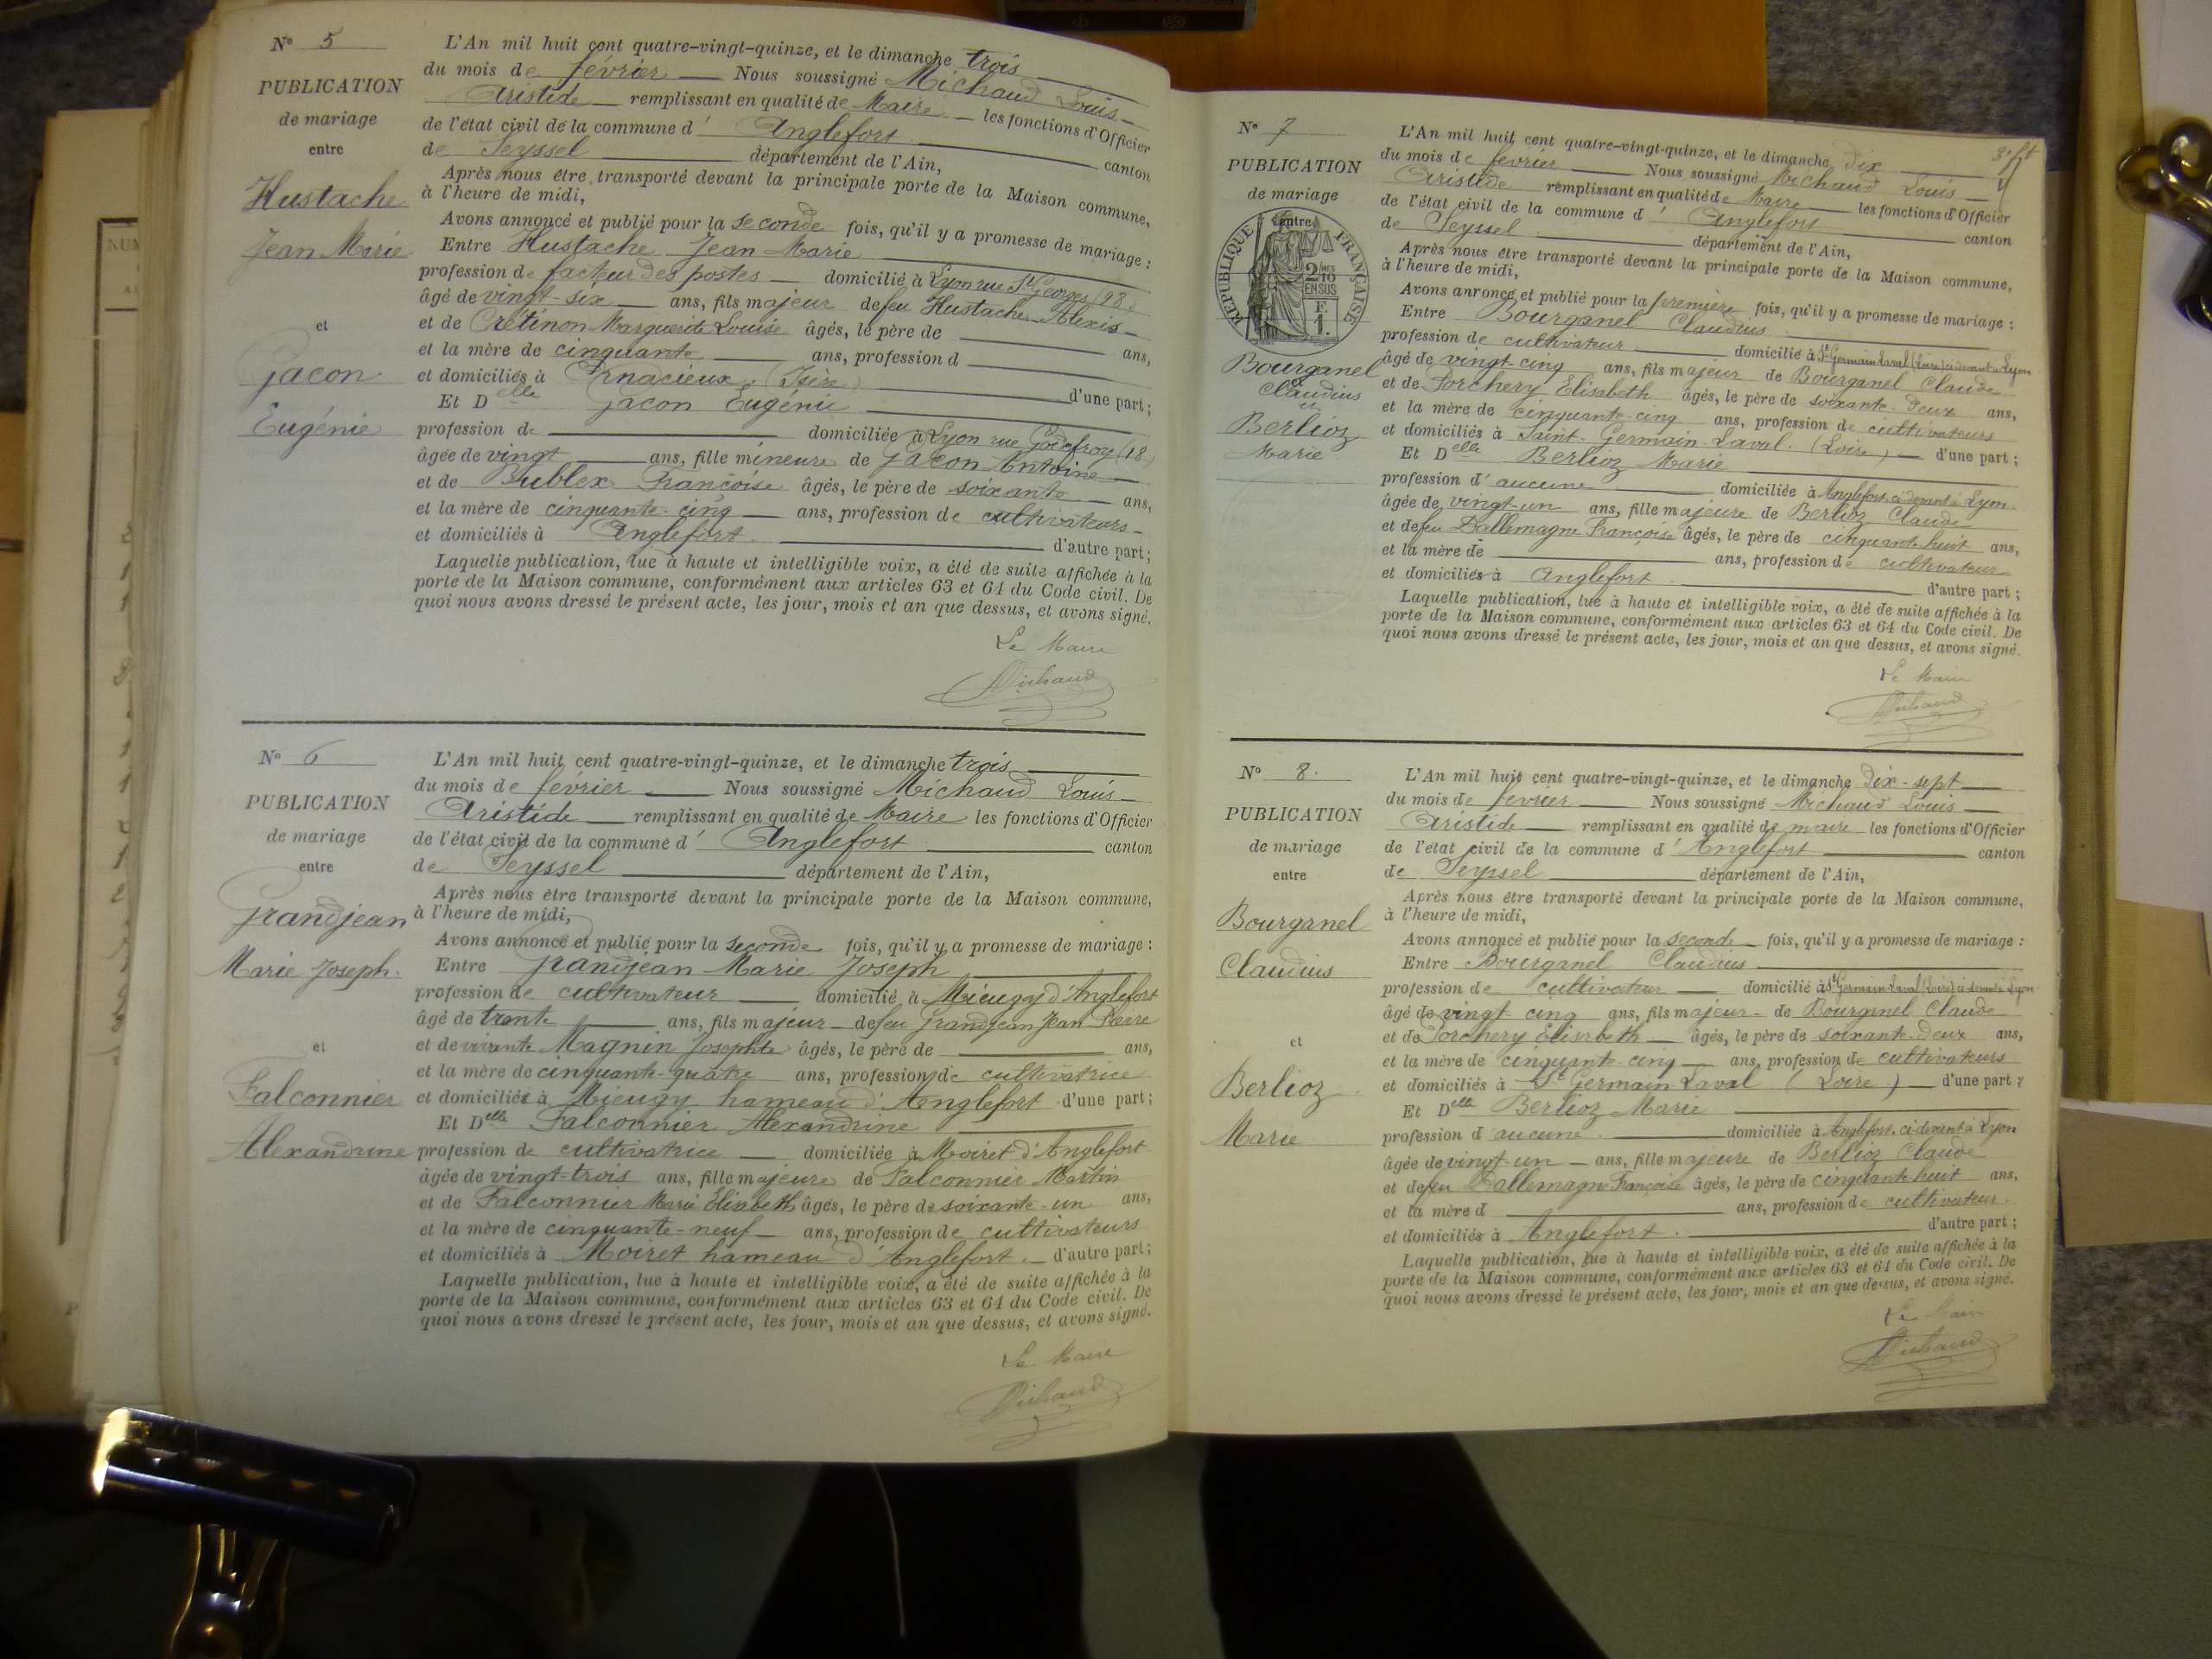 N° 5
PUBLICATION
de mariage
entre
Hustache
Jean Marie
et
Gacon
Eugénie
L'An mil huit cent quatre-vingt-quinze, et le dimanche trois
du mois de février Nous soussigné Michaud Louis
Aristide remplissant en qualité de Maire les fonctions d'Officier
de l'état civil de la commune d' Anglefort canton
de Seyssel département de l'Ain,
Après nous être transporté devant la principale porte de la Maison commune,
à l'heure de midi,
Avons annoncé et publié pour la seconde fois, qu'il y a promesse de mariage :
Entre Hustache Jean Marie
profession de facteur des postes domicilié à Lyon rue St Georges (98)
âgé de vingt-six ans, fils majeur de feu Hustache Alexis
et de Crétinon Marguerite Louise âgés, le père de ans,
et la mère de cinquante ans, profession d
et domiciliés à (Isère) d'une part ;
Et Delle Gacon Eugénie
profession de domiciliée à Lyon rue Godefroy (18)
âgée de vingt ans, fille mineure de Gacon Antoine
et de Bublex Françoise âgés, le père de soixante ans,
et la mère de cinquante-cinq ans, profession de cultivateurs
et domiciliés à Anglefort. d'autre part ;
Laquelle publication, lue à haute et intelligible voix, a été de suite affichée à la
porte de la Maison commune, conformément aux articles 63 et 64 du Code civil. De
quoi nous avons dressé le présent acte, les jour, mois et an que dessus, et avons signé.
Le Maire
Michaud
N° 6
PUBLICATION
de mariage
entre
Grandjean
Marie Joseph.
et
Falconnier
Alexandrine
L'An mil huit cent quatre-vingt-quinze, et le dimanche trois
du mois de février Nous soussigné Michaud Louis
Aristide remplissant en qualité de Maire les fonctions d'Officier
de l'état civil de la commune d' Anglefort canton
de Seyssel département de l'Ain,
Après nous être transporté devant la principale porte de la Maison commune,
à l'heure de midi,
Avons annoncé et publié pour la seconde fois, qu'il y a promesse de mariage :
Entre Grandjean Marie Joseph
profession de cultivateur domicilié à Mieugy d'Anglefort
âgé de trente ans, fils majeur de feu Grandjean Jean Pierre
et de vivante Magnin Josephte âgés, le père de ans,
et la mère de cinquante-quatre ans, profession de cultivatrice
et domiciliés à Mieugy hameau d'Anglefort d'une part ;
Et Delle Falconnier Alexandrine
profession de cultivatrice domiciliée à Moiret d'Anglefort
âgée de vingt-trois ans, fille majeure de Falconnier Martin
et de Falconnier Marie Elisabeth âgés, le père de soixante-un ans,
et la mère de cinquante-neuf ans, profession de cultivateurs
et domiciliés à Moiret hameau d'Anglefort. d'autre part ;
Laquelle publication, lue à haute et intelligible voix, a été de suite affichée à la
porte de la Maison commune, conformément aux articles 63 et 64 du Code civil. De
quoi nous avons dressé le présent acte, les jour, mois et an que dessus, et avons signé.
Le Maire
Michaud
N° 7
PUBLICATION
de mariage
entre
RÉPUBLIQUE FRANÇAISE
2/10MES
EN SUS
F.
1.
Bourganel
Claudius
et
Berlioz
Marie
L'An mil huit cent quatre-vingt-quinze, et le dimanche dix
du mois de février Nous soussigné Michaud Louis
Aristide remplissant en qualité de Maire les fonctions d'Officier
de l'état civil de la commune d' Anglefort canton
de Seyssel département de l'Ain,
Après nous être transporté devant la principale porte de la Maison commune,
à l'heure de midi,
Avons annoncé et publié pour la première fois, qu'il y a promesse de mariage :
Entre Bourganel Claudius
profession de cultivateur domicilié à St Germain Laval (Loire) ci devant à Lyon
âgé de vingt cinq ans, fils majeur de Bourganel Claude
et de Porchery Elisabeth âgés, le père de soixante-deux ans,
et la mère de cinquante-cinq ans, profession de cultivateurs
et domiciliés à Saint-Germain-Laval. (Loire) d'une part ;
Et Delle Berlioz Marie
profession d' aucune domiciliée à Anglefort ci devant à Lyon
âgée de vingt-un ans, fille majeure de Berlioz Claude
et de feu Dallemagne Françoise âgés, le père de cinquante huit ans,
et la mère de ans, profession de cultivateur
et domiciliés à Anglefort d'autre part ;
Laquelle publication, lue à haute et intelligible voix, a été de suite affichée à la
porte de la Maison commune, conformément aux articles 63 et 64 du Code civil. De
quoi nous avons dressé le présent acte, les jour, mois et an que dessus, et avons signé.
Le Maire
Michaud
N° 8.
PUBLICATION
de mariage
entre
Bourganel
Claudius
et
Berlioz
Marie
L'An mil huit cent quatre-vingt-quinze, et le dimanche dix-sept
du mois de février Nous soussigné Michaud Louis
Aristide remplissant en qualité de maire les fonctions d'Officier
de l'état civil de la commune d' Anglefort canton
de Seyssel département de l'Ain,
Après nous être transporté devant la principale porte de la Maison commune,
à l'heure de midi,
Avons annoncé et publié pour la seconde fois, qu'il y a promesse de mariage :
Entre Bourganel Claudius
profession de cultivateur domicilié à St Germain-Laval (Loire) ci devant à Lyon
âgé de vingt cinq ans, fils majeur de Bourganel Claude
et de Porchery Elisabeth âgés, le père de soixante-deux ans,
et la mère de cinquante-cinq ans, profession de cultivateurs
et domiciliés à St Germain Laval (Loire) d'une part ;
Et Delle Berlioz Marie
profession d aucune domiciliée à Anglefort ci devant à Lyon
âgée de vingt-un ans, fille majeure de Berlioz Claude
et de feu Dallemagne Françoise âgés, le père de cinquante huit ans,
et la mère d ans, profession de cultivateur
et domiciliés à Anglefort. d'autre part ;
Laquelle publication, lue à haute et intelligible voix, a été de suite affichée à la
porte de la Maison commune, conformément aux articles 63 et 64 du Code civil. De
quoi nous avons dressé le présent acte, les jour, mois et an que dessus, et avons signé.
Le Maire
Michaud